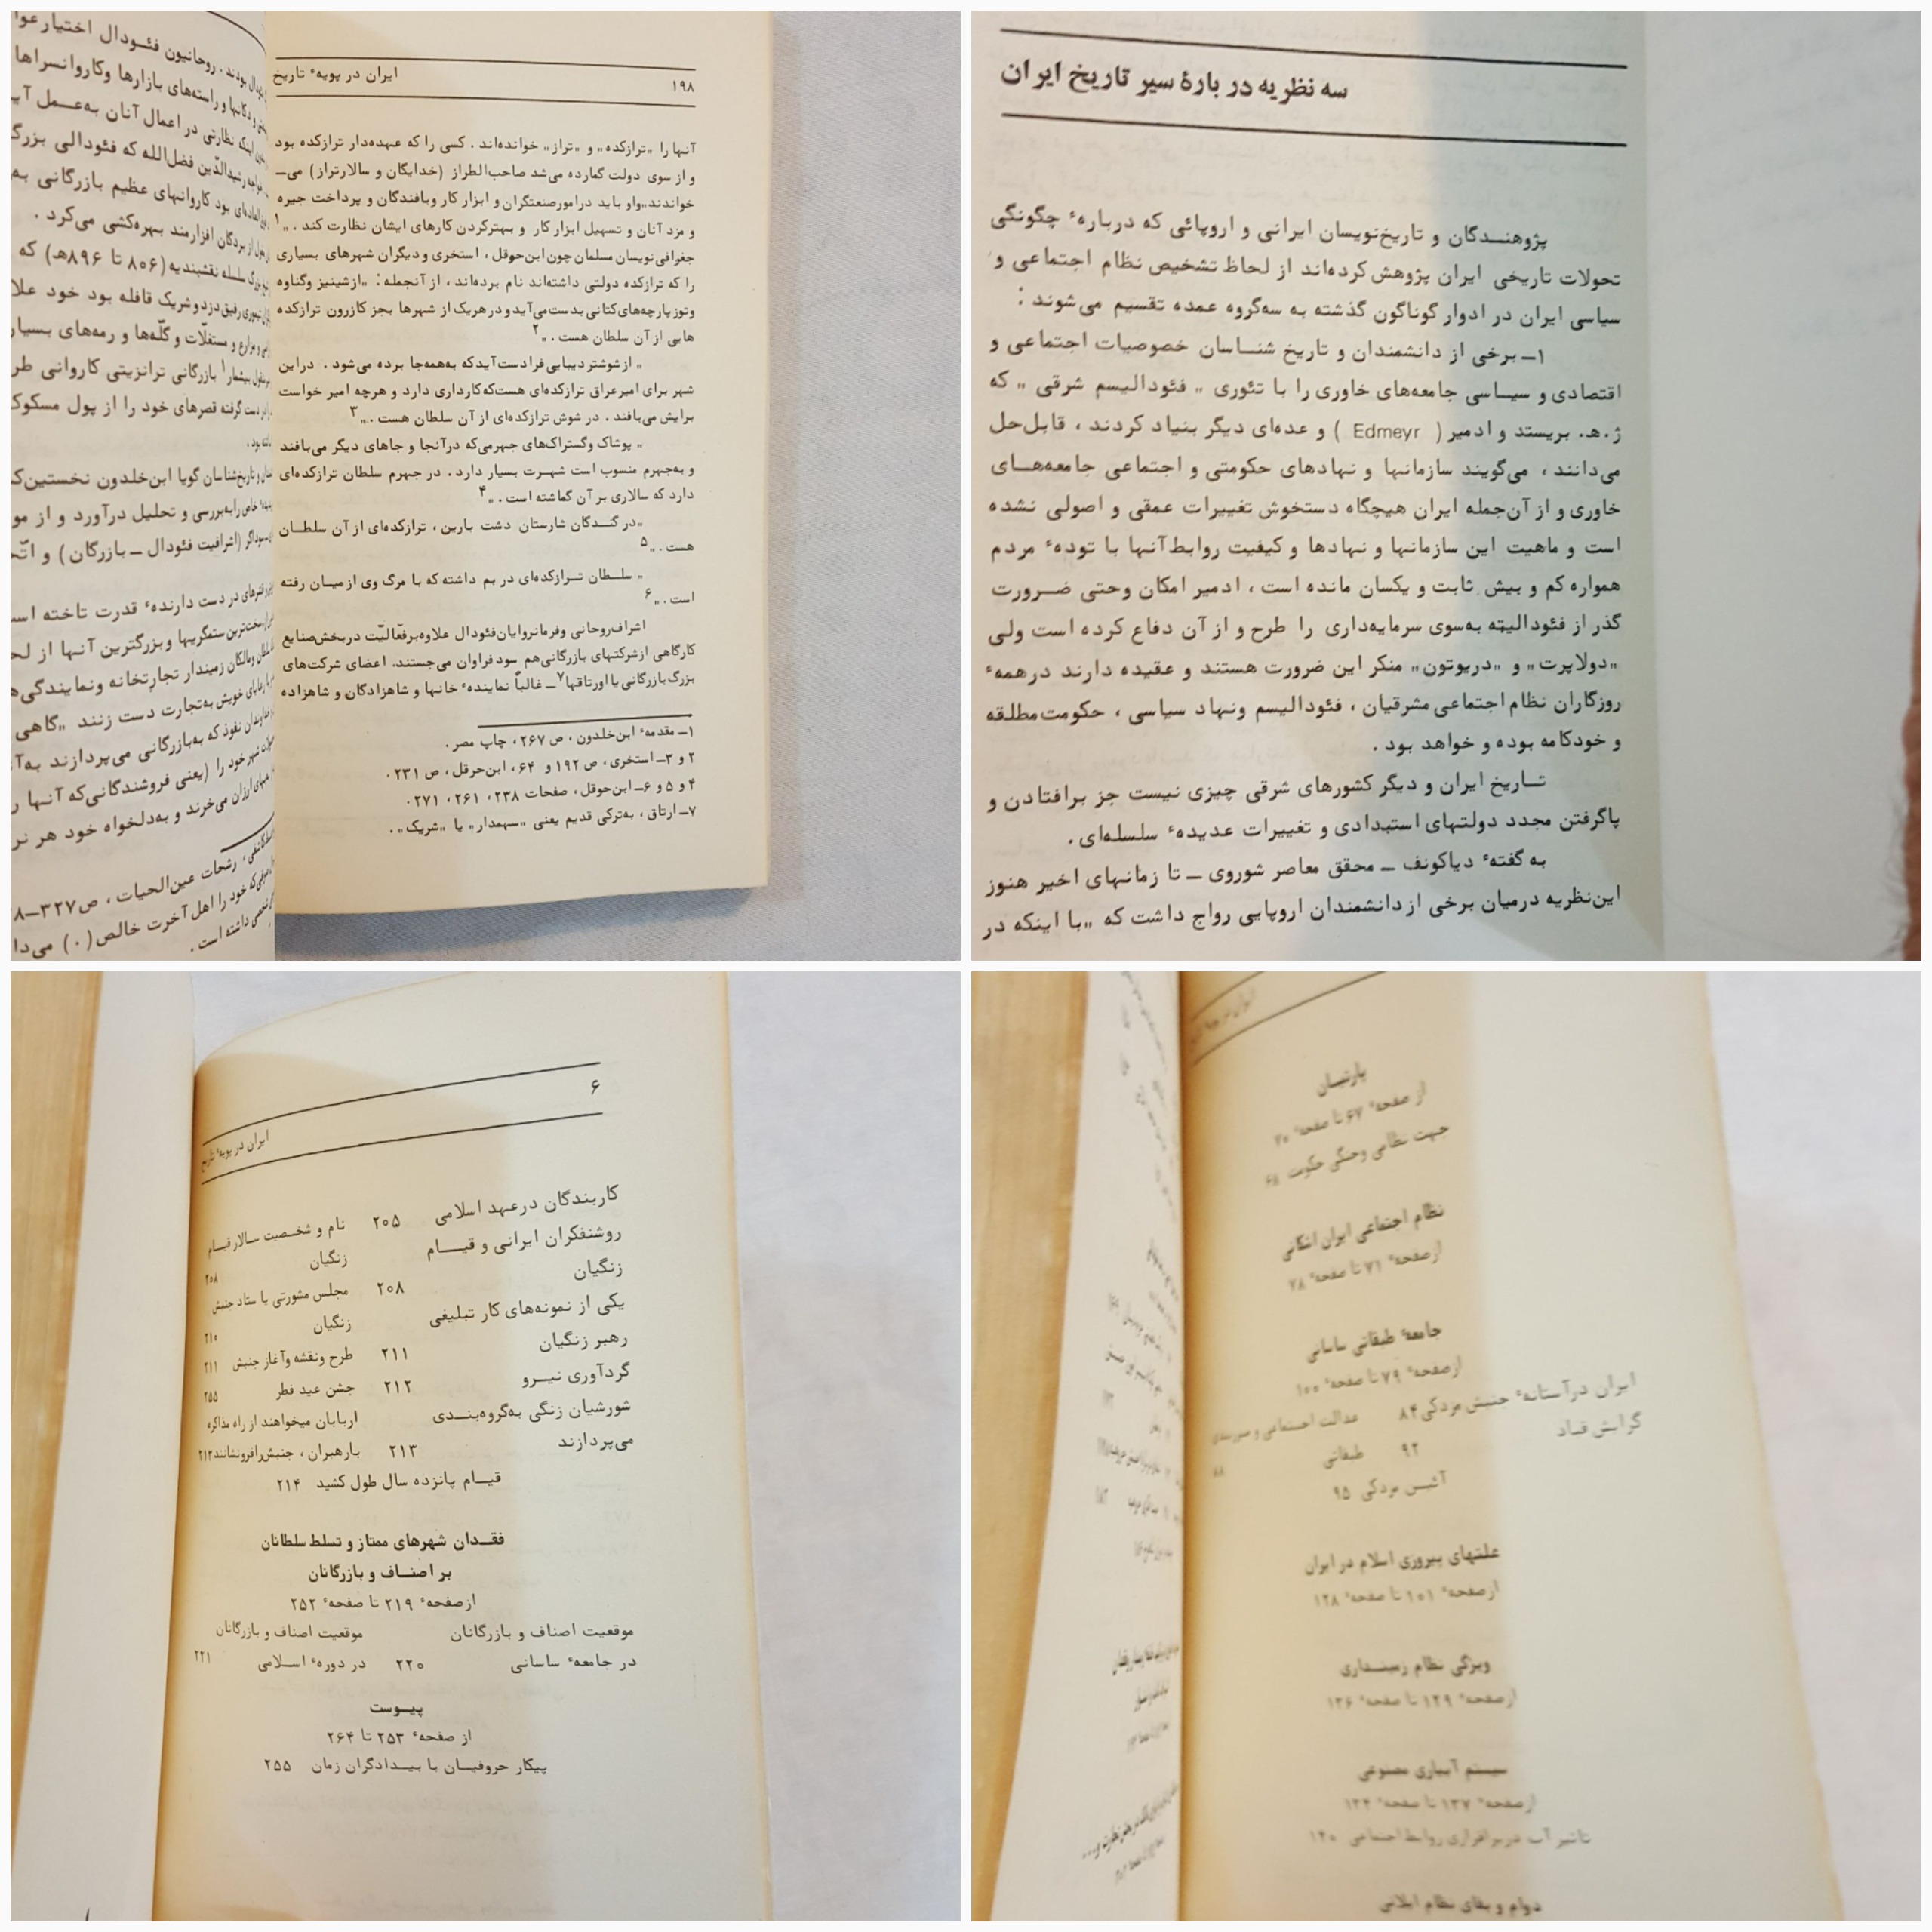 ایران در پویهٔ تاریخ
۱۹۸
آنها را „ترازکده„ و „تراز„ خوانده‌اند . کسی را که عهده‌دار ترازکده بود
و از سوی دولت گمارده می‌شد صاحب‌الطراز (خدایگان و سالارتراز) می‌ــ
خواندند„واو باید درامورصنعتگران و ابزار کار وبافندگان و پرداخت جیره
و مزد آنان و تسهیل ابزار کار و بهترکردن کارهای ایشان نظارت کند . „۱
جغرافی‌نویسان مسلمان چون‌ابن‌حوقل ، استخری ودیگران شهرهای بسیاری
را که ترازکده دولتی داشته‌اند نام برده‌اند ، از آنجمله : „ازشینیز وگناوه
وتوز پارچه‌های‌کتانی بدست‌می‌آید و در هریک از شهرها بجز کازرون ترازکده
هایی از آن سلطان هست . „۲
„ از شوشتر دیبایی فرادست‌آید که به‌همه‌جا برده می‌شود . دراین
شهر برای امیرعراق ترازکده‌ای هست‌که‌کارداری دارد و هرچه امیر خواست
برایش می‌بافند . در شوش ترازکده‌ای از آن سلطان هست . „۳
„ پوشاک وگستراک‌های جهرمی‌که درآنجا و جاهای دیگر می‌بافند
و به‌جهرم منسوب است شهــرت بسیار دارد . در جهرم سلطان ترازکده‌ای
دارد که سالاری بر آن گماشته است . „۴
„در گنــدگان شارستان دشت بارین ، ترازکده‌ای از آن سلطــان
هست . „۵
„ سلــطان تــرازکده‌ای در بم داشته که با مرگ وی از میــان رفته
است . „۶
اشراف‌روحانی وفرمانروایان‌فئودال علاوه‌برفعّالیّت دربخش‌صنایع
کارگاهی ازشرکتهای بازرگانی‌هم سود فراوان می‌جستند. اعضای شرکت‌های
بزرگ بازرگانی یا اورتاقها۷ــ غالباً نمایندهٔ خانها و شاهزادگان و شاهزاده
۱ــ مقدمهٔ ابن‌خلدون ، ص ۲۶۷ ، چاپ مصر .
۲ و ۳ــ استخری ، ص ۱۹۲ و ۶۴ ، ابن‌حرقل ، ص ۲۳۱ .
۴ و ۵ و ۶ــ ابن‌حوقل ، صفحات ۲۳۸ ، ۲۶۱ ، ۲۷۱ .
۷ــ ارتاق ، به‌ترکی قدیم یعنی „سهمدار„ یا „شریک„ .
بودند . روحانیون فئــودال اختیار
و دکانها و راسته‌های بازارها وکاروانسراها
اینکه نظارتی در اعمال آنان به‌عــمل
رشیدالدّین فضل‌الله که فئودالی بزرگ
بود کاروانهای عظیم بازرگانی
بردگان افزارمند بهره‌کشی می‌کرد .
سلسله نقشبندیه (۸۰۶ تا ۸۹۶هـ) که
تیموری رفیق دزد و شریک قافله بود خود
و مزارع و مستغلّات و گلّه‌ها و رمه‌های
بیشمار۱ بازرگانی ترانزیتی کاروانی
دست گرفته قصرهای خود را از پول
بود .
و تاریخ‌شناسان گویا ابن‌خلدون
خاص را به‌بررسی و تحلیل درآورد و از
(اشرافیت فئودال ــ بازرگان) و
در دست دارندهٔ قدرت تاخته
ستمگریها وبزرگترین آنها از
ومالکان زمیندار تجارتخانه ونمایندگی
خویش به‌تجارت دست زنند „گاهی
نفوذ که به‌بازرگانی می‌پردازند
شهر خود را (یعنی فروشندگانی‌که آنها
ارزان می‌خرند و به‌دلخواه خود هر
رشحات عین‌الحیات ، ص ۳۲۷ــ
خود را اهل آخرت خالص(۰)
داشته است .
سه نظریه در بارهٔ سیر تاریخ ایران
پژوهنــدگان و تاریخ‌نویسان ایرانی و اروپائی که دربارهٔ چگونگی
تحولات تاریخی ایران پژوهش‌کرده‌اند از لحاظ تشخیص نظام اجتماعی و
سیاسی ایران در ادوار گوناگون گذشته به سه‌گروه عمده تقسیم می‌شوند :
۱ــ برخی از دانشمندان و تاریخ شنــاسان خصوصیات اجتماعی و
اقتصادی و سیــاسی جامعه‌های خاوری را با تئوری „ فئودالیسم شرقی „ که
ژ.هـ. بریستد و ادمیر ( Edmeyr ) و عده‌ای دیگر بنیاد کردند ، قابل‌حل
می‌دانند ، می‌گویند سازمانها و نهادهای حکومتی و اجتماعی جامعه‌هــای
خاوری و از آن‌جمله ایران هیچگاه دستخوش تغییرات عمقی و اصولی نشده
است و ماهیت این سازمانها و نهادها و کیفیت روابط آنها با تودهٔ مردم
همواره کم و بیش ثابت و یکسان مانده است ، ادمیر امکان وحتی ضــرورت
گذر از فئودالیته به‌سوی سرمایه‌داری را طرح و از آن دفاع کرده است ولی
„دولاپرت„ و „دریوتون„ منکر این ضرورت هستند و عقیده دارند درهمهٔ
روزگاران نظام اجتماعی مشرقیان ، فئودالیسم ونهاد سیاسی ، حکومت‌مطلقه
و خودکامه بوده و خواهد بود .
تــاریخ ایران و دیگر کشورهای شرقی چیزی نیست جز برافتادن و
پاگرفتن مجدد دولتهای استبدادی و تغییرات عدیدهٔ سلسله‌ای .
به گفتهٔ دیاکونف ــ محقق معاصر شوروی ــ تا زمانهای اخیر هنوز
این‌نظریه درمیان برخی از دانشمندان اروپایی رواج داشت که „با اینکه در
۶
ایران در پویهٔ تاریخ
کاربندگان درعهد اسلامی ۲۰۵
روشنفکران ایرانی و قیــــام
زنگیان ۲۰۸
یکی از نمونه‌های کار تبلیغی
رهبر زنگیان ۲۱۱
گردآوری نیــرو ۲۱۲
شورشیان زنگی به‌گروه‌بنــدی
می‌پردازند ۲۱۳
نام و شخــصیت سـالار قیــام
زنگیان ۲۰۸
مجلس مشورتی یا ستاد جنبش
زنگیان ۲۱۰
طرح ونقشه وآغاز جنبش ۲۱۱
جشن عید فطر ۲۵۵
اربابان میخواهند از راه مذاکره
بارهبران ، جنبش‌رافرونشانند ۲۱۳
قیــام پانزده سال طول کشید ۲۱۴
فقــدان شهرهای ممتاز و تسلط سلطانان
بر اصنــاف و بازرگانان
ازصفحهٔ ۲۱۹ تا صفحهٔ ۲۵۲
موقعیت اصناف و بازرگانان
در جامعهٔ ساسانی ۲۲۰
موقعیت اصناف و بازرگانان
در دورهٔ اسلامی ۲۲۱
پیــوست
از صفحهٔ ۲۵۳ تا ۲۶۴
پیکار حروفیــان با بیــدادگران زمان ۲۵۵
پارتیــان
از صفحهٔ ۶۷ تا صفحهٔ ۷۰
جهت نظامی وجنگی حکومت ۶۸
نظام اجتماعی ایران اشکانی
ازصفحهٔ ۷۱ تا صفحهٔ ۷۸
جامعهٔ طبقاتی ساسانی
ازصفحهٔ ۷۹ تا صفحهٔ ۱۰۰
ایران درآستانهٔ جنبش مزدکی ۸۴
گرایش قباد ۹۲
عدالت اجتماعی و
طبقاتی ۸۸
آئیــن مزدکی ۹۵
علتهای پیروزی اسلام در ایران
ازصفحهٔ ۱۰۱ تا صفحهٔ ۱۲۸
ویژگی نظام زمینــداری
ازصفحهٔ ۱۲۹ تا صفحهٔ ۱۳۶
سیستم آبیاری مصنوعی
ازصفحهٔ ۱۳۷ تا صفحهٔ ۱۴۴
تاثیر آب دربرقراری روابط اجتماعی ۱۴۰
دوام و بقای نظام ایلاتی